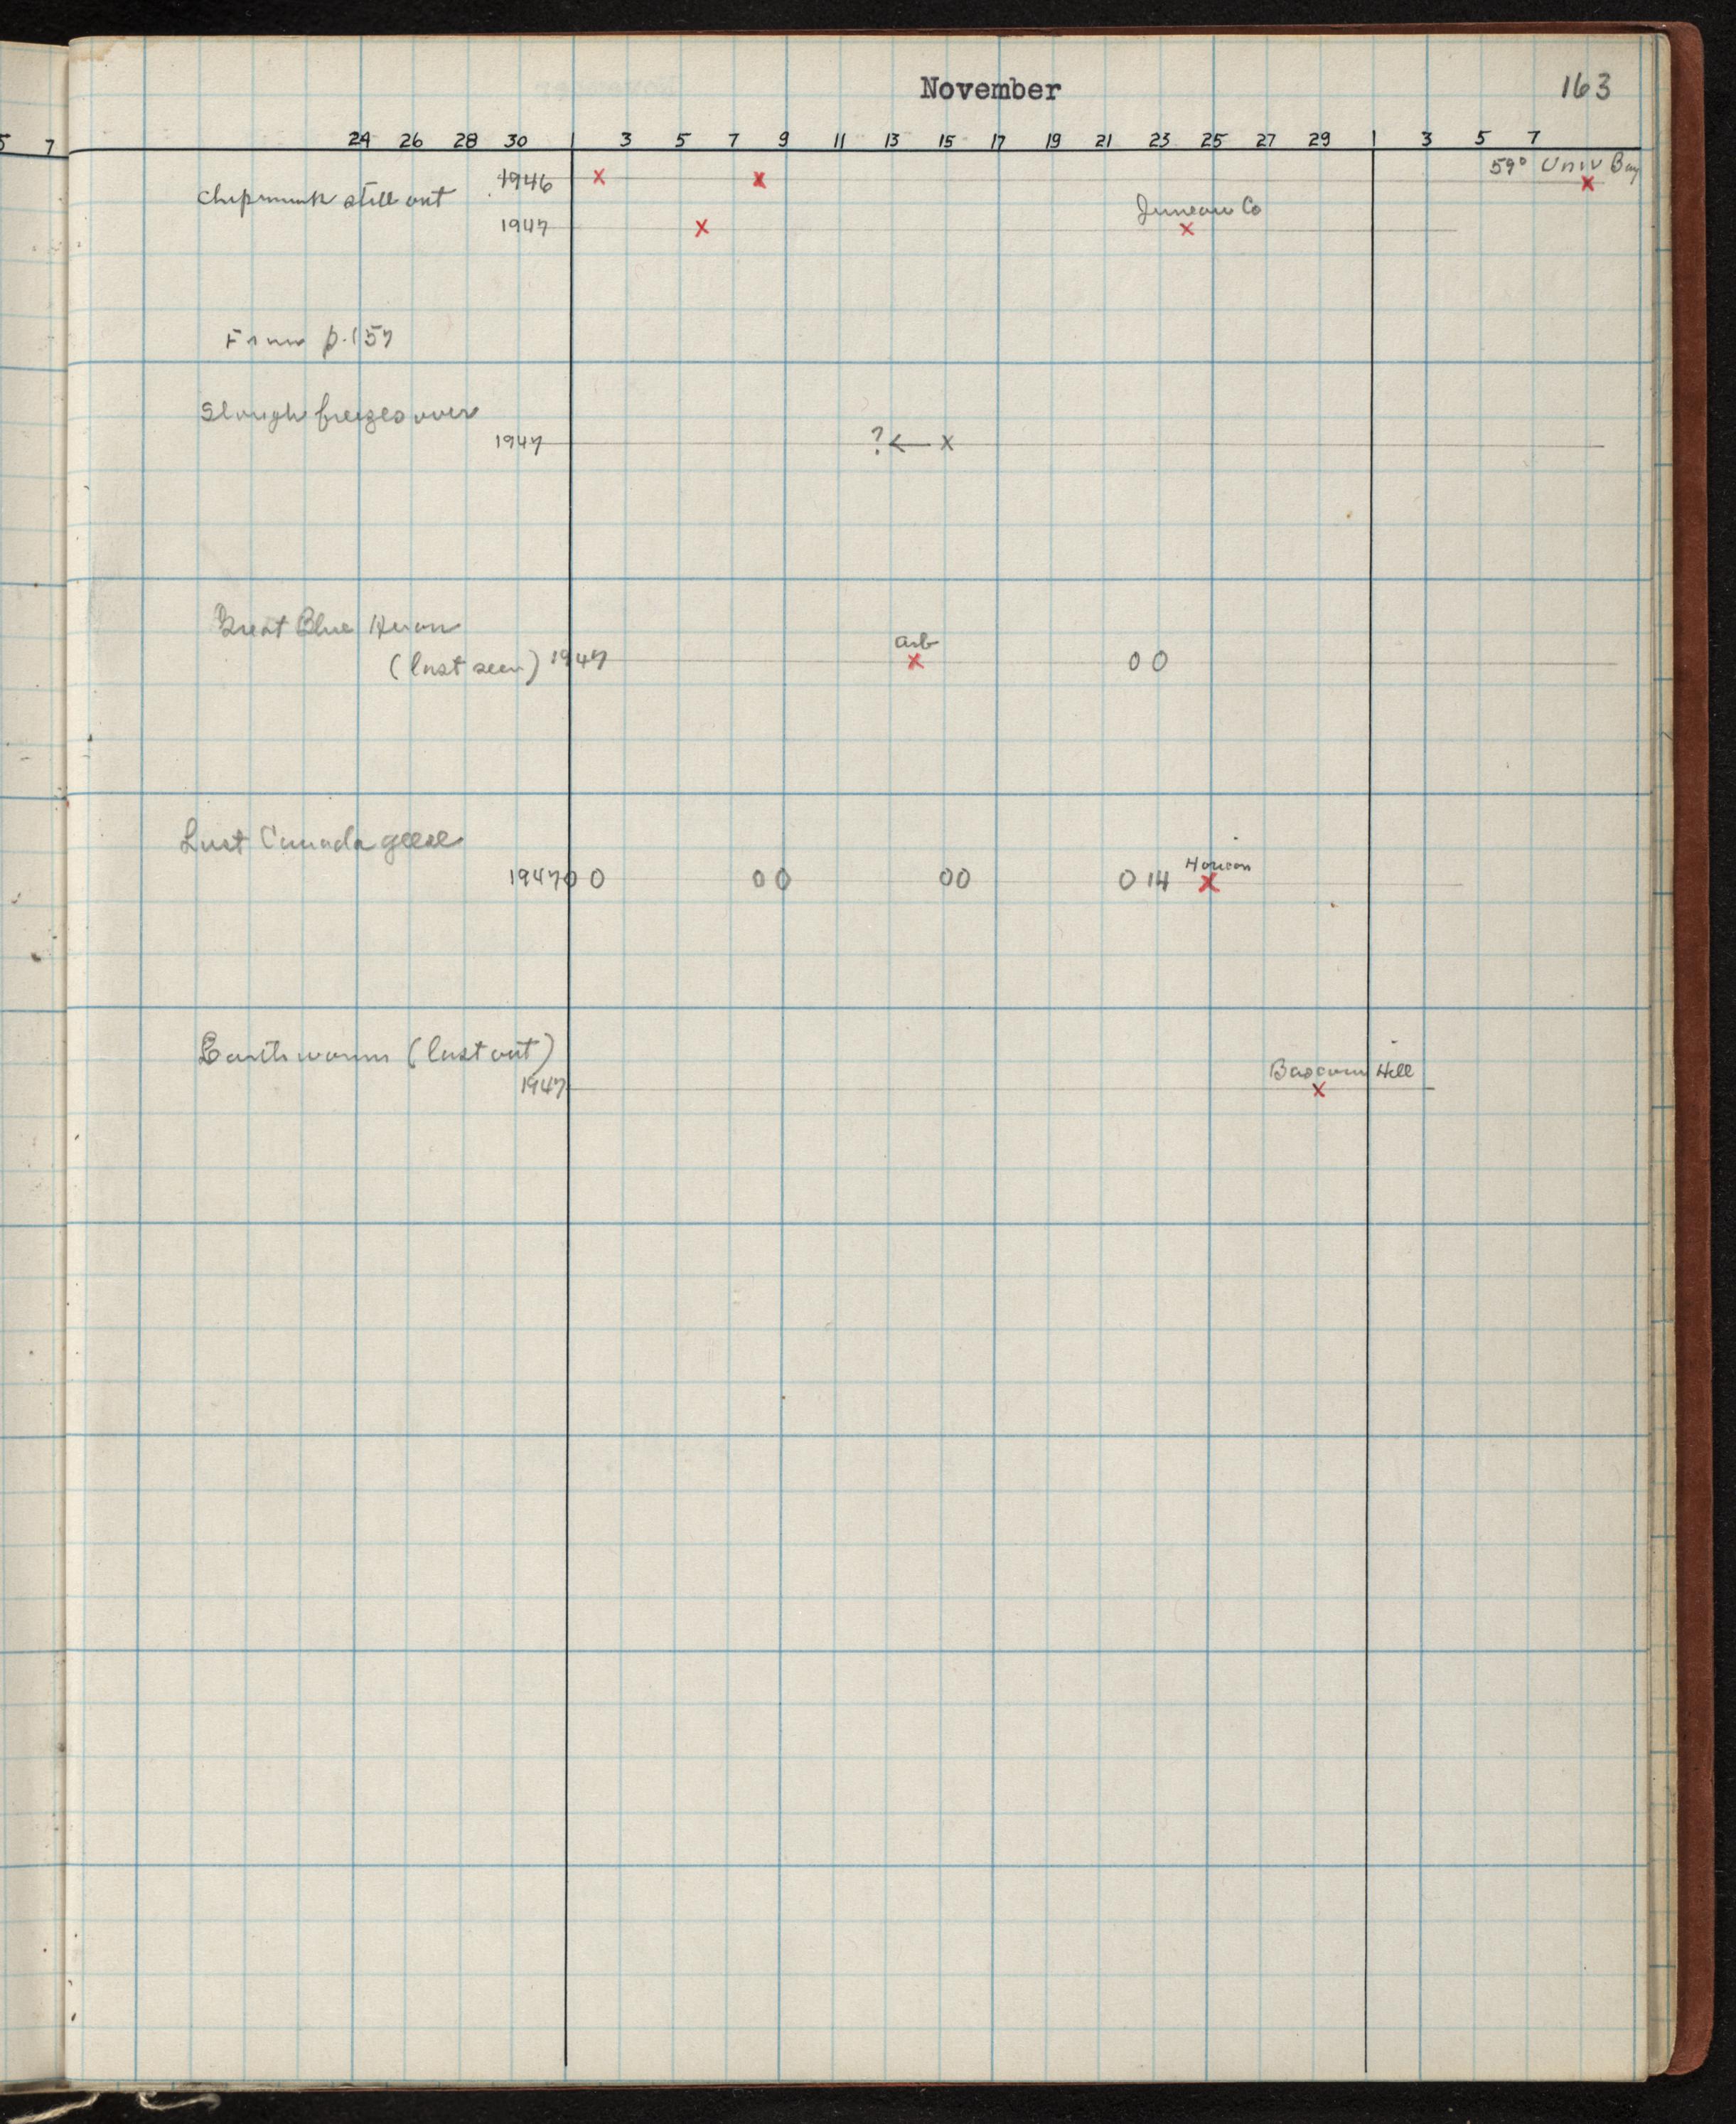 November
163
5 7
24 26 28 30 1 3 5 7 9 11 13 15 17 19 21 23 25 27 29 1 3 5 7
59° Univ Bay
1946 x x x
Chipmunk still out
Juneau Co
1947 x x
From p. 157
Slough freezes over
1947 ?← x
Great Blue Heron
arb
(last seen) 1947 x 0 0
Last Canada geese
Horicon
1947 0 0 0 0 0 0 0 14 x
Earthworms (last out)
Bascom Hill
1947 x